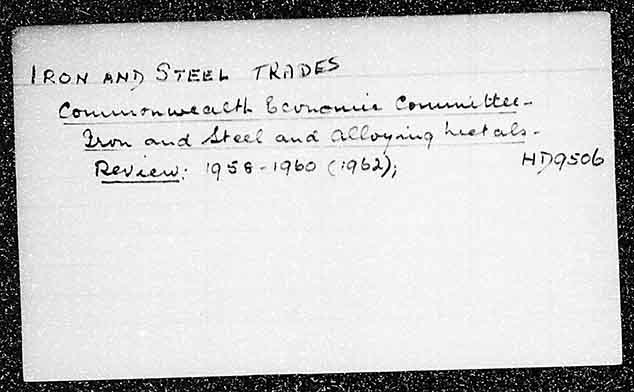 IRON AND STEEL TRADES
Commonwealth Economic Committee-
Iron and Steel and Alloying Metals-
Review: 1958-1960 (1962); HD9506